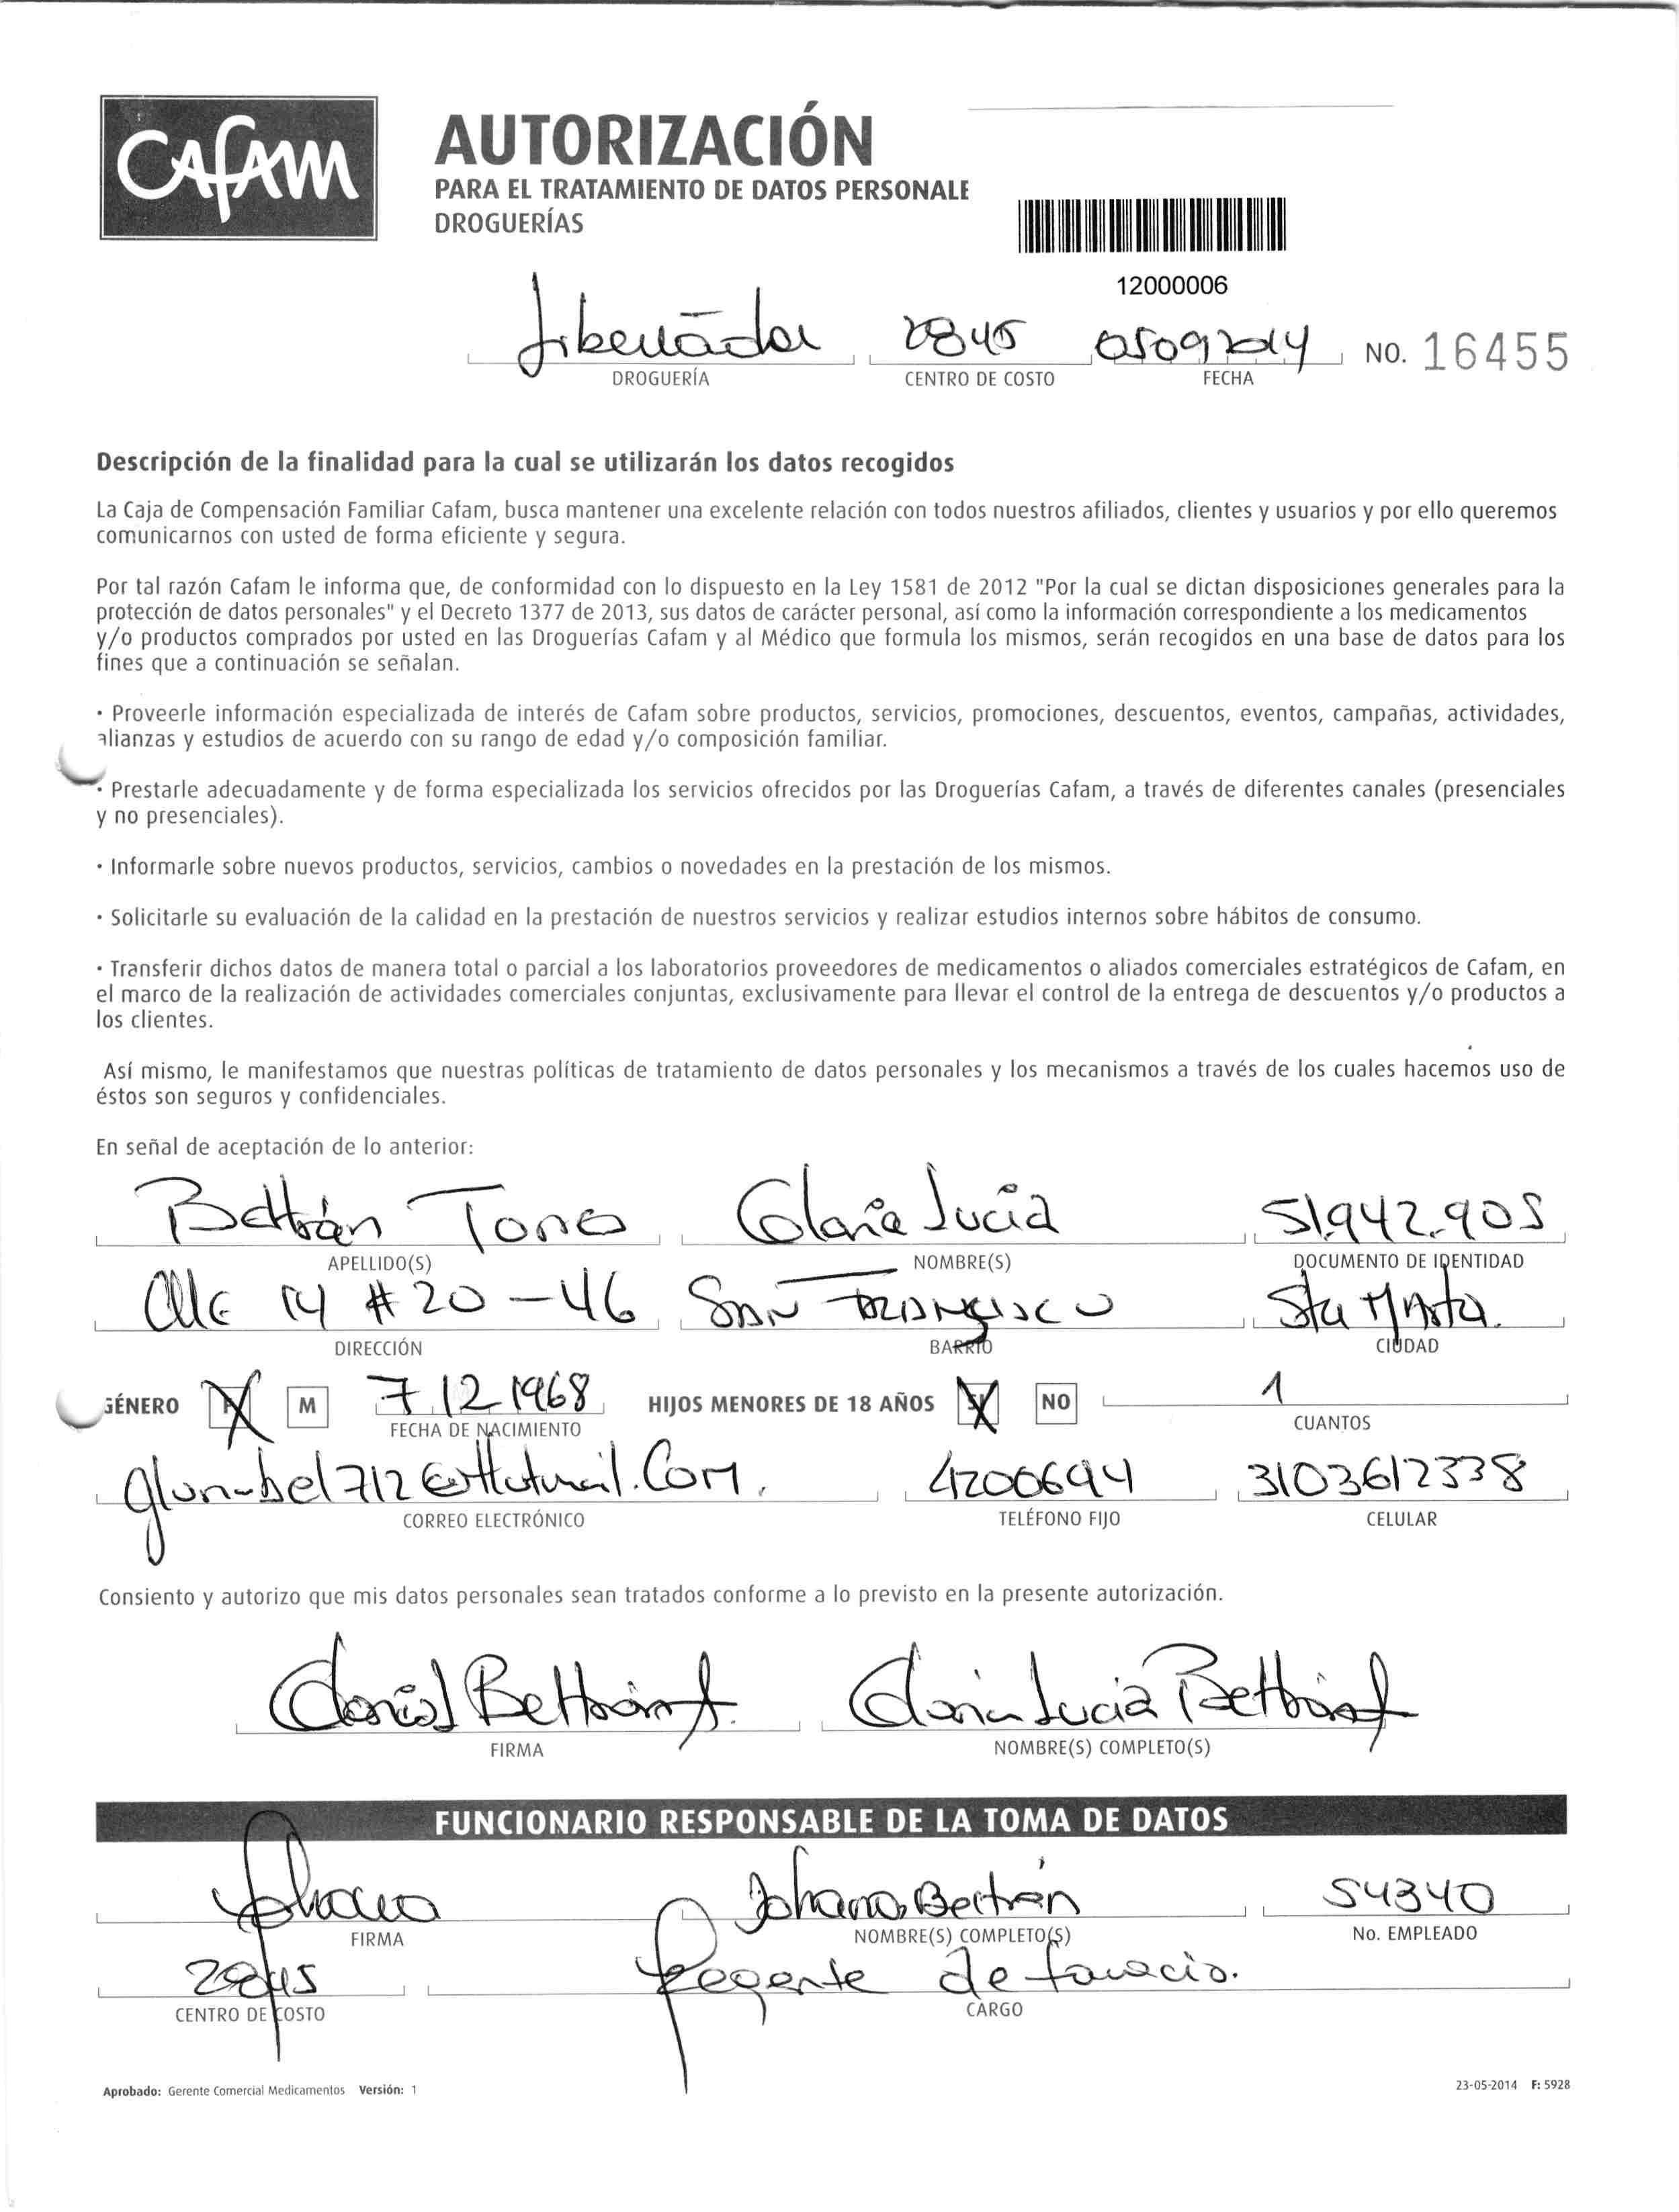 CAFAM
AUTORIZACIÓN
PARA EL TRATAMIENTO DE DATOS PERSONALE
DROGUERÍAS
12000006
Libertador 2845 05092014 NO. 16455
DROGUERÍA CENTRO DE COSTO FECHA
Descripción de la finalidad para la cual se utilizarán los datos recogidos
La Caja de Compensación Familiar Cafam, busca mantener una excelente relación con todos nuestros afiliados, clientes y usuarios y por ello queremos
comunicarnos con usted de forma eficiente y segura.
Por tal razón Cafam le informa que, de conformidad con lo dispuesto en la Ley 1581 de 2012 "Por la cual se dictan disposiciones generales para la
protección de datos personales" y el Decreto 1377 de 2013, sus datos de carácter personal, así como la información correspondiente a los medicamentos
y/o productos comprados por usted en las Droguerías Cafam y al Médico que formula los mismos, serán recogidos en una base de datos para los
fines que a continuación se señalan.
· Proveerle información especializada de interés de Cafam sobre productos, servicios, promociones, descuentos, eventos, campañas, actividades,
alianzas y estudios de acuerdo con su rango de edad y/o composición familiar.
· Prestarle adecuadamente y de forma especializada los servicios ofrecidos por las Droguerías Cafam, a través de diferentes canales (presenciales
y no presenciales).
· Informarle sobre nuevos productos, servicios, cambios o novedades en la prestación de los mismos.
· Solicitarle su evaluación de la calidad en la prestación de nuestros servicios y realizar estudios internos sobre hábitos de consumo.
· Transferir dichos datos de manera total o parcial a los laboratorios proveedores de medicamentos o aliados comerciales estratégicos de Cafam, en
el marco de la realización de actividades comerciales conjuntas, exclusivamente para llevar el control de la entrega de descuentos y/o productos a
los clientes.
Así mismo, le manifestamos que nuestras políticas de tratamiento de datos personales y los mecanismos a través de los cuales hacemos uso de
éstos son seguros y confidenciales.
En señal de aceptación de lo anterior:
Beltrán Torres Gloria Lucía 51.942.905
APELLIDO(S) NOMBRE(S) DOCUMENTO DE IDENTIDAD
Clle 14 # 20 - 46 SAN FRANCISCO Sta Marta.
DIRECCIÓN BARRIO CIUDAD
GÉNERO F M 7 12 1968 HIJOS MENORES DE 18 AÑOS SI NO 1
FECHA DE NACIMIENTO CUANTOS
@Hotmail.Com. 4200694 3103612338
CORREO ELECTRÓNICO TELÉFONO FIJO CELULAR
Consiento y autorizo que mis datos personales sean tratados conforme a lo previsto en la presente autorización.
Gloria L Beltrán T. Gloria Lucia Beltrán T
FIRMA NOMBRE(S) COMPLETO(S)
FUNCIONARIO RESPONSABLE DE LA TOMA DE DATOS
Johana Johana Beltrán 54340
FIRMA NOMBRE(S) COMPLETO(S) No. EMPLEADO
2845 Regente de farmacia.
CENTRO DE COSTO CARGO
Aprobado: Gerente Comercial Medicamentos Versión: 1 23-05-2014 F: 5928